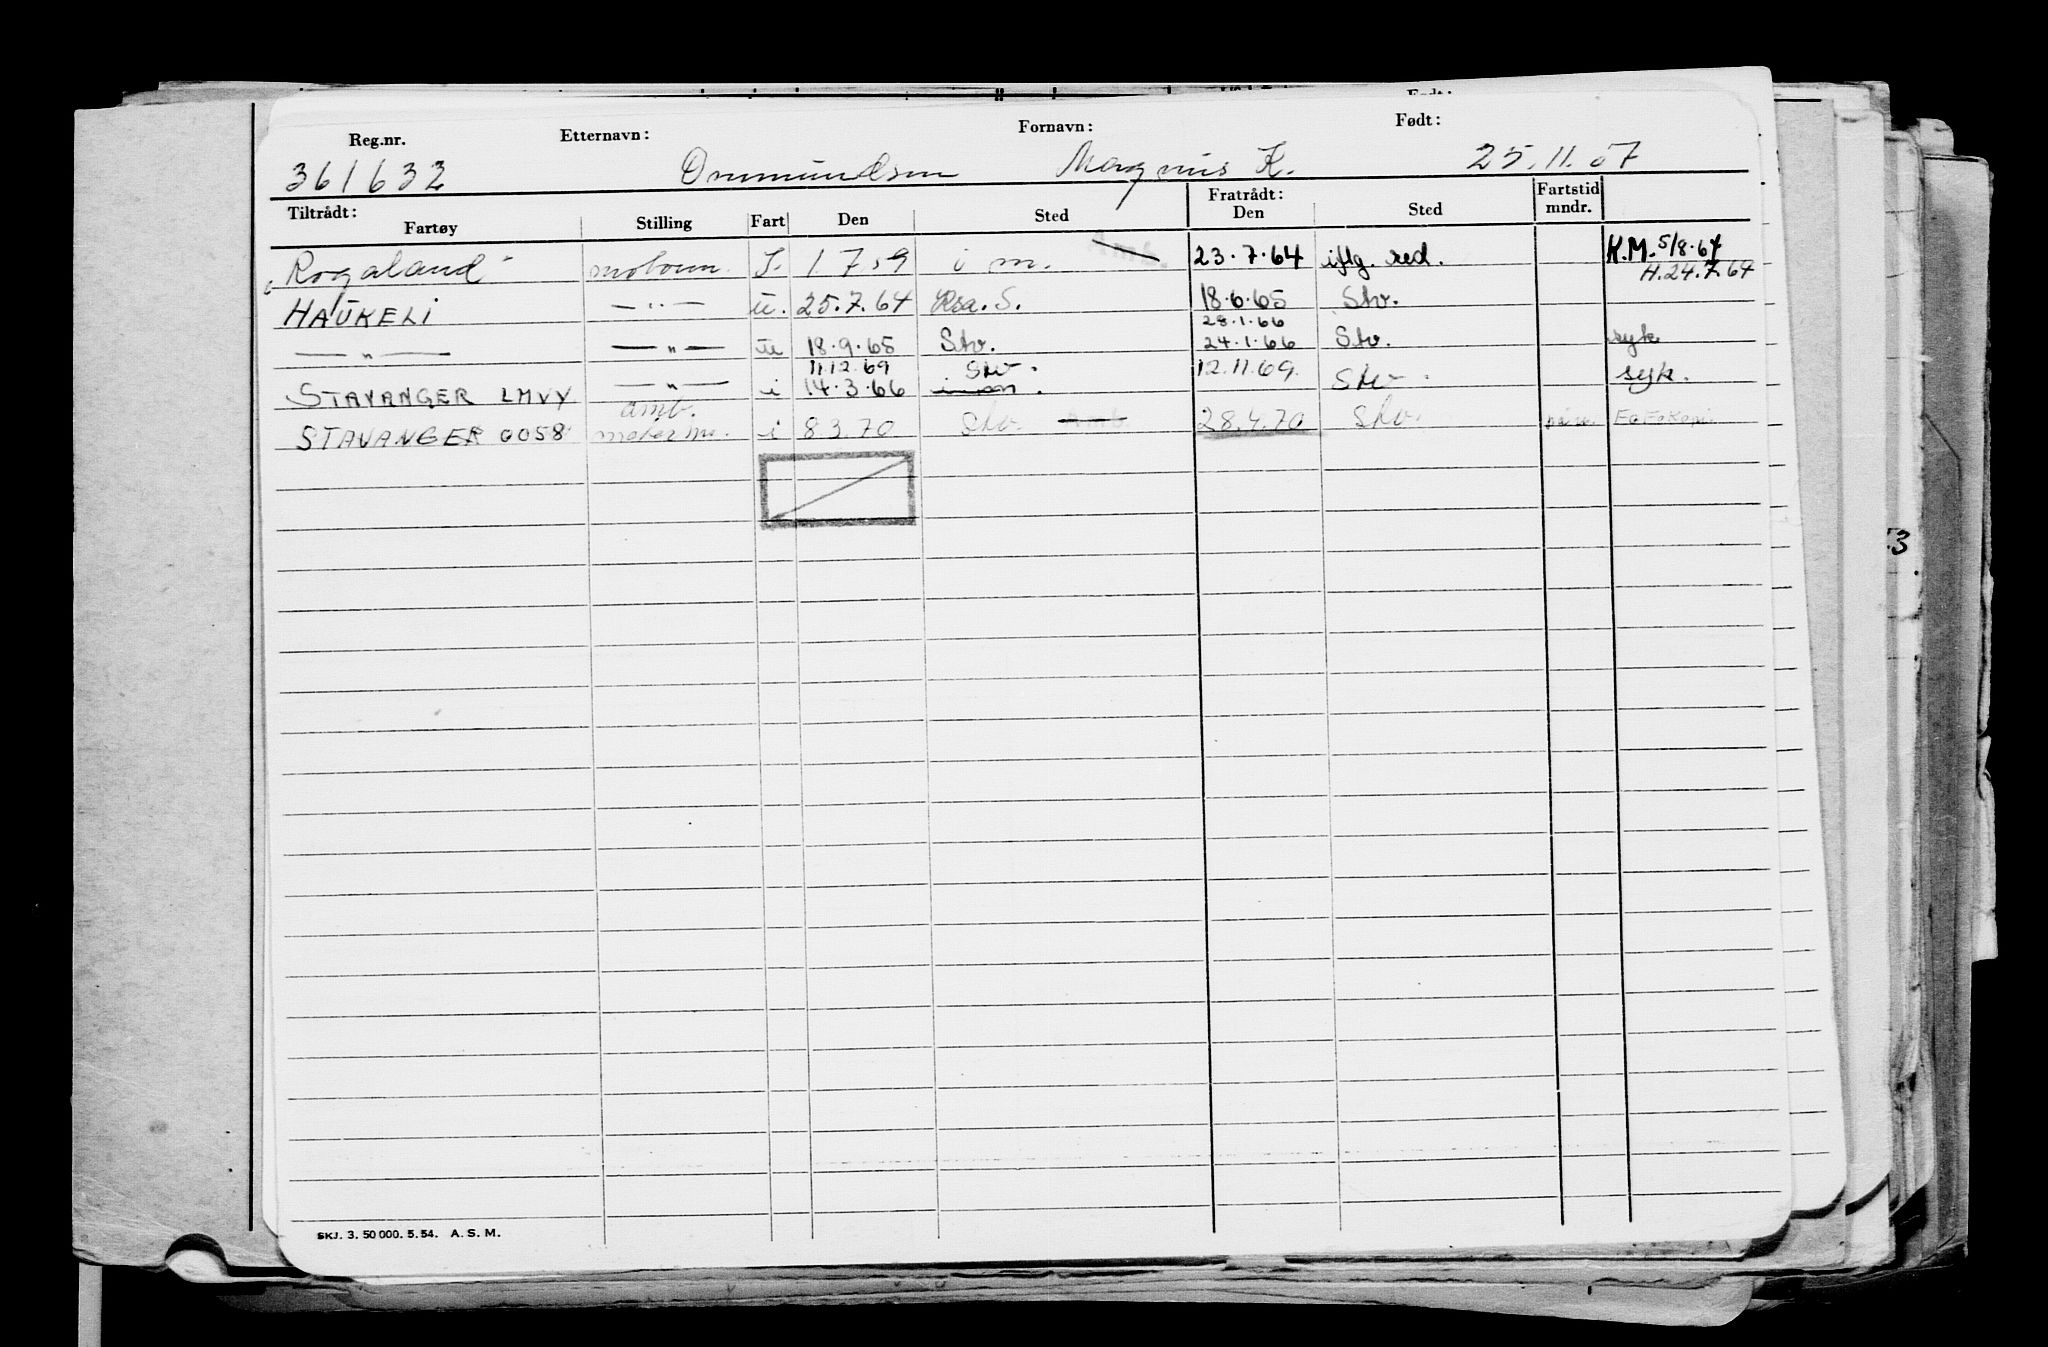 Reg.nr. Etternavn: Fornavn: Født:
361632 Ommundsen Magnus K. 25.11.07
Tiltrådt: Fratrådt: Fartstid
Fartøy Stilling Fart Den Sted Den Sted mndr.
"Rogaland" motorm. I. 1 7 59 i m. 23.7.64 iflg. red. K.M. 5/8.64
H.24.7.64
HAUKELI — " — u. 25.7.64 Krs. S. 18.6.65 Stv.
28.1.66
— " — — " — u 18.9.65 Stv. 24.1.66 Stv. syk
11.12.69 Stv.
STAVANGER LMVY — " — i 14.3.66 12.11.69. Stv. syk.
amb.
STAVANGER 0058 motorm. i 8 3.70 Stv. 28.4.70 Stv.
SKJ. 3. 50 000. 5. 54. A. S. M.